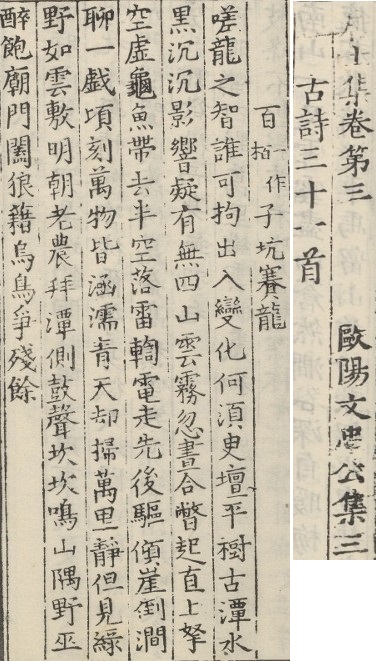 居士集卷第三　歐陽文忠公集三
古詩三十一首
百一作栢子坑賽龍
嗟龍之智誰可拘出入變化何須㬰壇平樹古潭水
黑沉沉影響疑有無四山雲霧忽晝合瞥起直上拏
空虛龜魚帶去半空落雷輷電走先後驅傾崖倒澗
聊一戲頃刻萬物皆涵濡青天却掃萬里靜但見綠
野如雲敷明朝老農拜潭側鼓聲坎坎鳴山隅野巫
醉飽廟門闔狼籍烏鳥爭殘餘